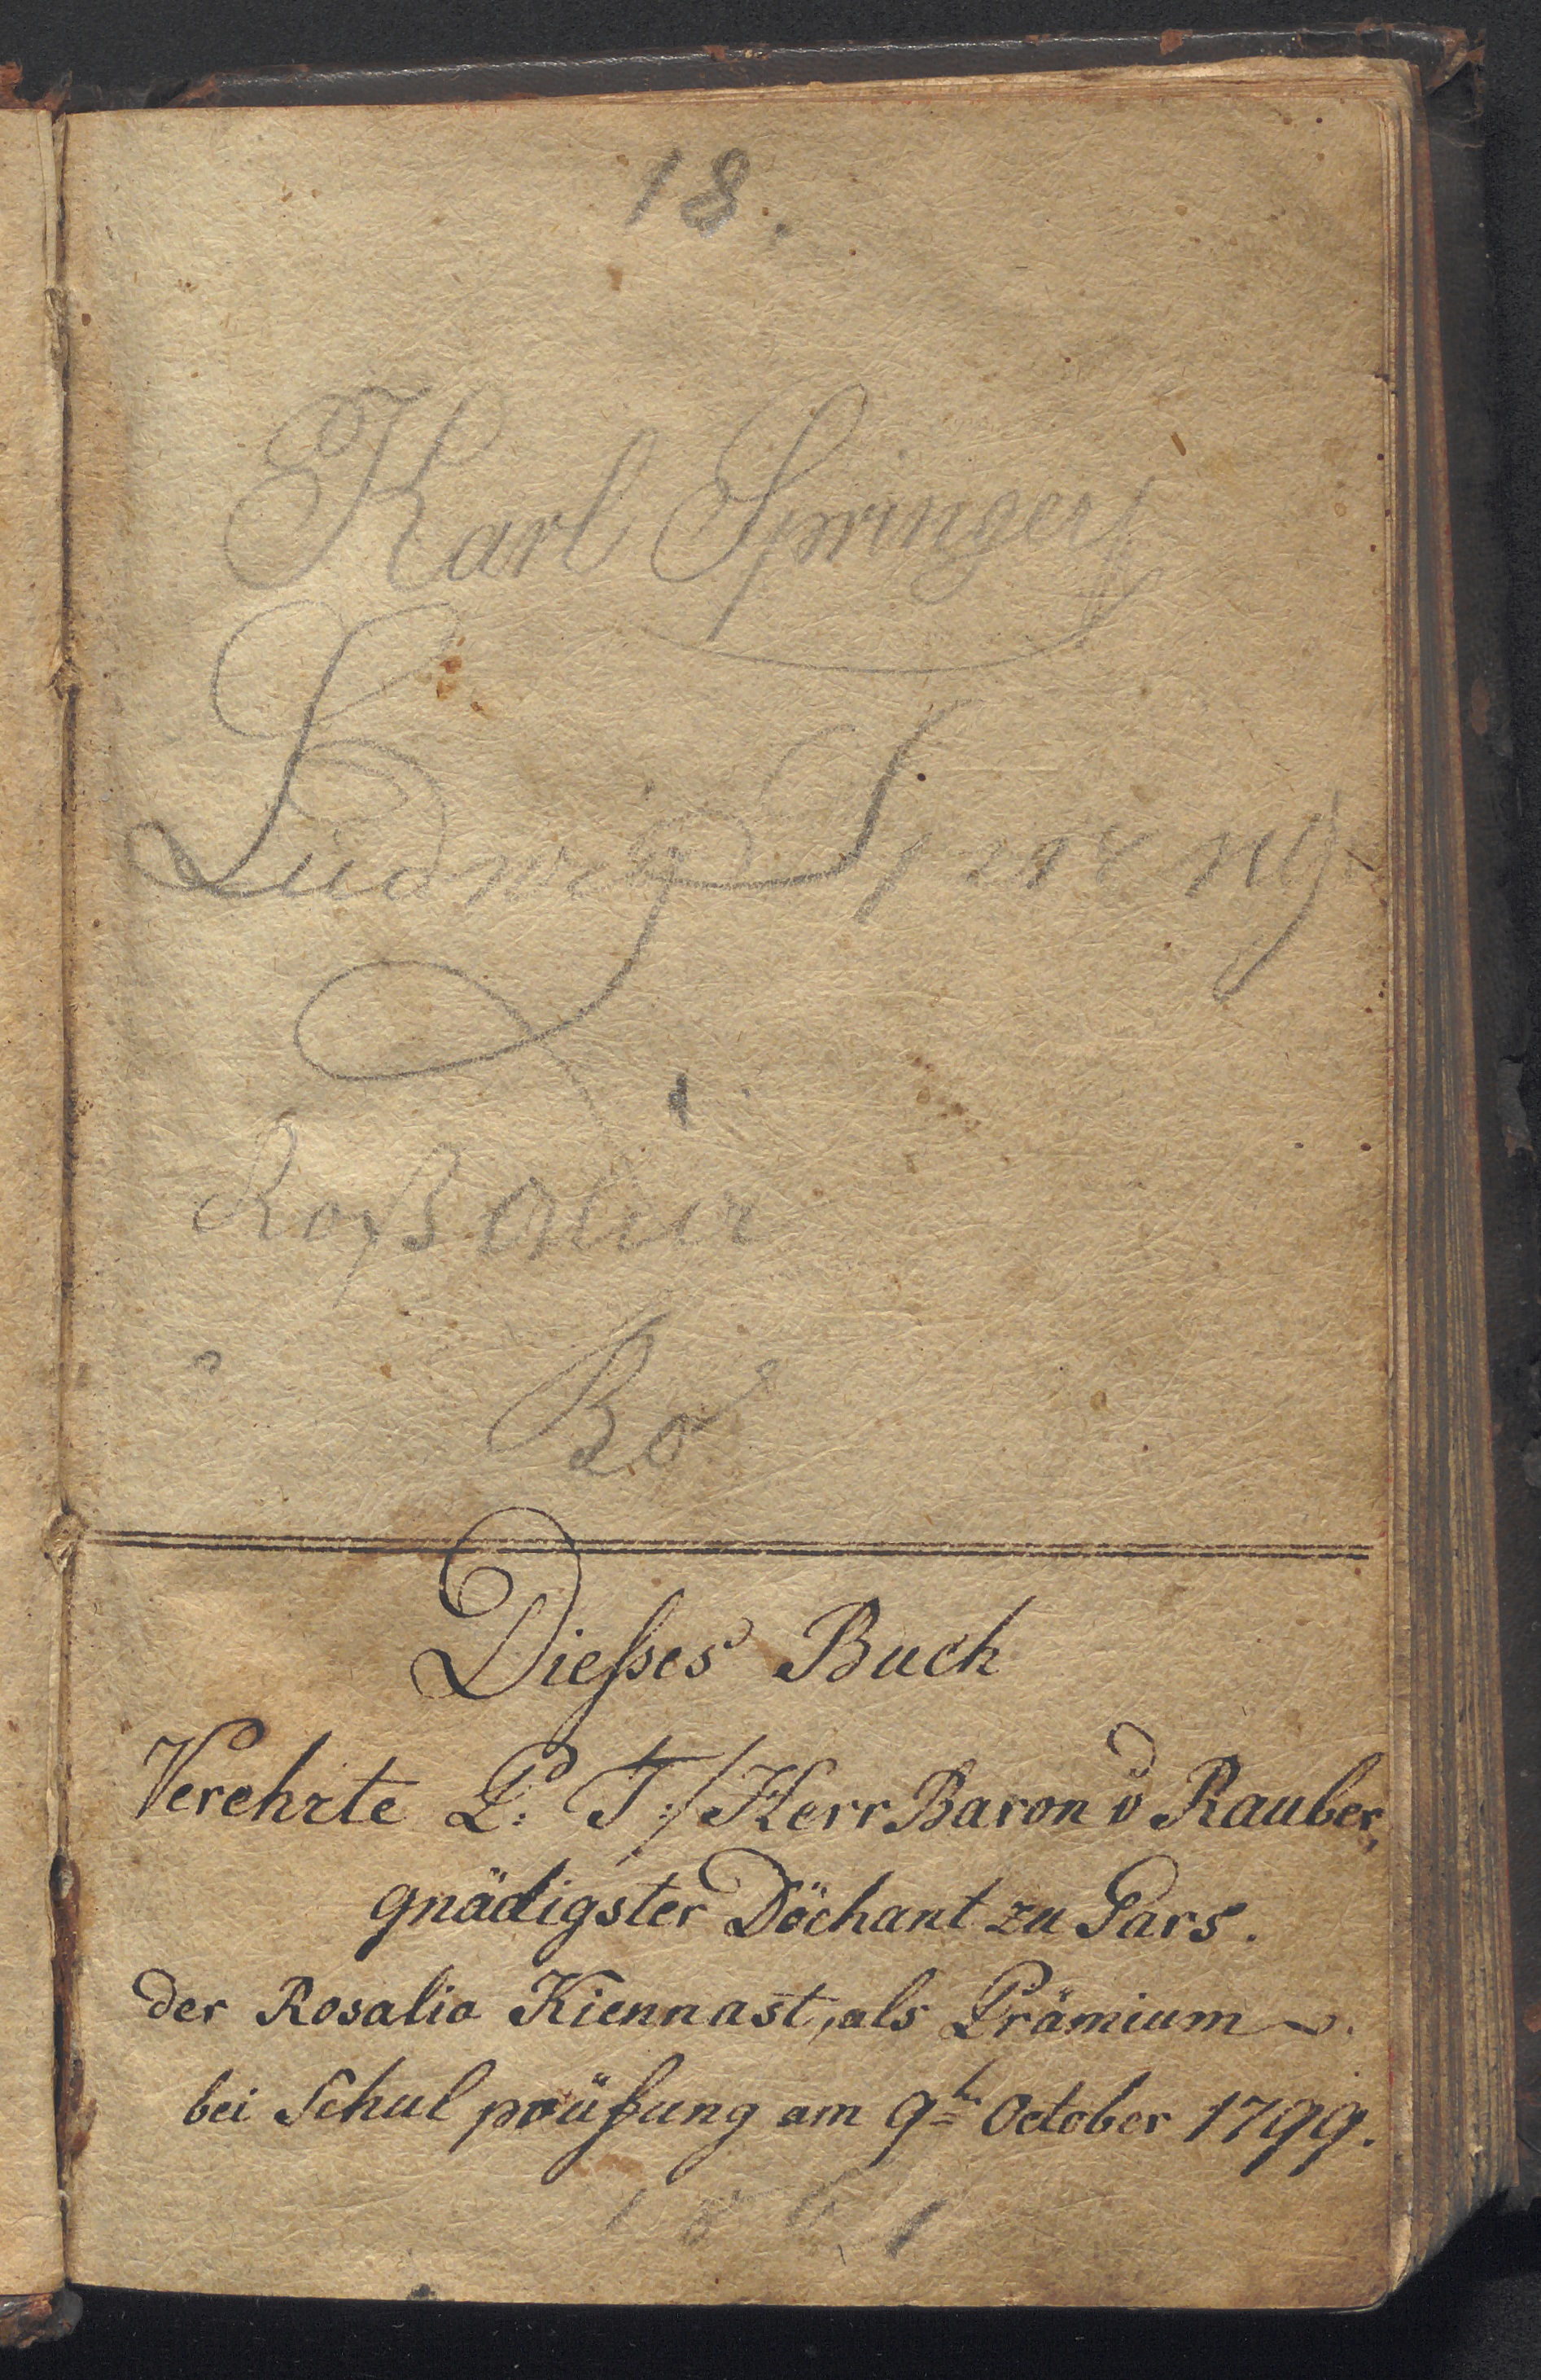 18.
Karl Springer
Ludwig Spring
Ro
Diesses Buch
Verehrte P: T:/ Herr Baron v Rauber,
gnädigster Döchant zu Gars.
der Rosalia Kiennast, als Prämium
bei Schul prüfung am 9t October 1799.
1861